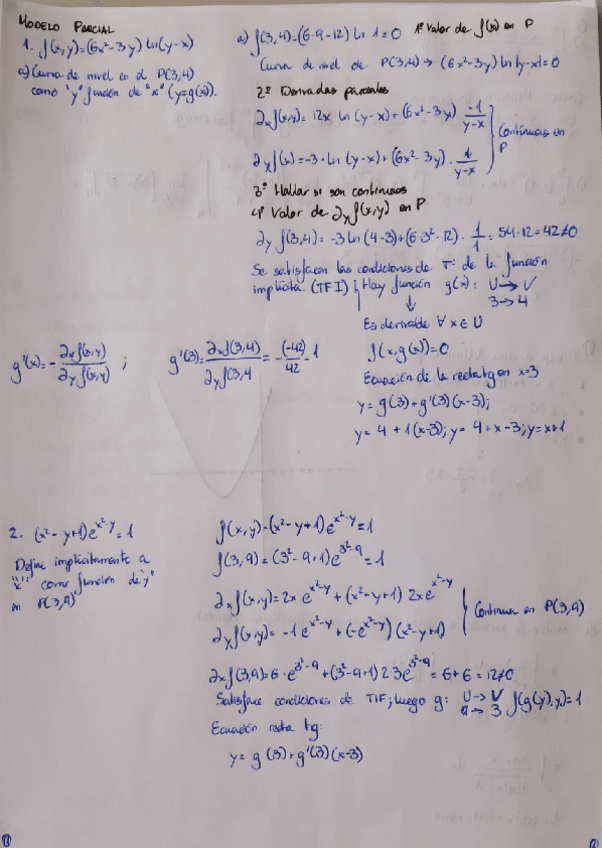 MODELO PARCIAL
1. f(x,y)=(6x²-3y) ln(y-x)
a) Curva de nivel en el P(3,4)
como "y" función de "x" (y=g(x)).
a) f(3,4)=(6·9-12) ln 1=0 1º Valor de f(x) en P
Curva de nivel de P(3,4) → (6x²-3y) ln(y-x)=0
2º Derivadas parciales
∂xf(x,y)= 12x · ln (y-x)+(6x²-3y) · -1/(y-x)
∂yf(x)=-3·ln (y-x)+(6x²-3y) · 1/(y-x)
Continuas en P
3º Hallar si son continuas
4º Valor de ∂yf(x,y) en P
∂yf(3,4)= -3 ln (4-3)+(6·3²-12) · 1/1 = 54-12=42≠0
Se satisfacen las condiciones de Tª de la función
implícita (TFI) Hay función g(x): U→V
3→4
↓
Es derivable ∀x∈U
f(x,g(x))=0
Ecuación de la recta tg en x=3
y= g(3)+g'(3)(x-3);
y= 4 + 1(x-3); y= 4+x-3; y=x+1
g'(x)= - ∂xf(x,y)/∂yf(x,y) ; g'(3)= ∂xf(3,4)/∂yf(3,4 = -(-42)/42 = 1
2. (x²-y+1)e^(x²-y)=1
Define implícitamente a
"x" como función de "y"
en P(3,9)
f(x,y)=(x²-y+1)e^(x²-y)=1
f(3,9)=(3²-9+1)e^(3²-9)=1
∂xf(x,y)=2x e^(x²-y)+(x²-y+1) 2xe^(x²-y)
∂yf(x,y)= -1 e^(x²-y)+(-e^(x²-y))(x²-y+1)
Continua en P(3,9)
∂xf(3,9)=6·e^(3²-9)+(3²-9+1)2·3e^(3²-9)=6+6=12≠0
Satisface condiciones de TIF; luego g: U→V f(g(y),y)=1
9→3
Ecuación recta tg:
y= g(3)+g'(3)(x-3)